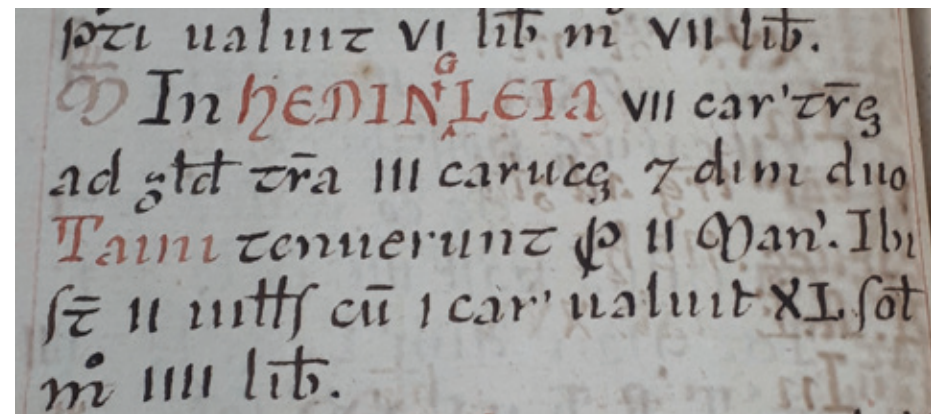 p̄ti ualuit VI lib̄ m̊ VII lib̄.
M In HEDINGLEIA VII car' tr̄ę
ad głd tr̄a III carucę 7 dim duo
Taini tenuerunt ꝓ II Man'. Ibi
ſt̄ II uiłłſ cū I car' ualuit XL ſoł
m̊ IIII lib̄.